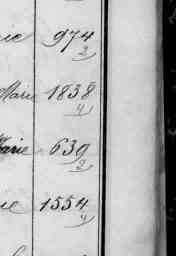 rie 974
2
Marie 1838
4
Marie 639
2
ue 1554
4